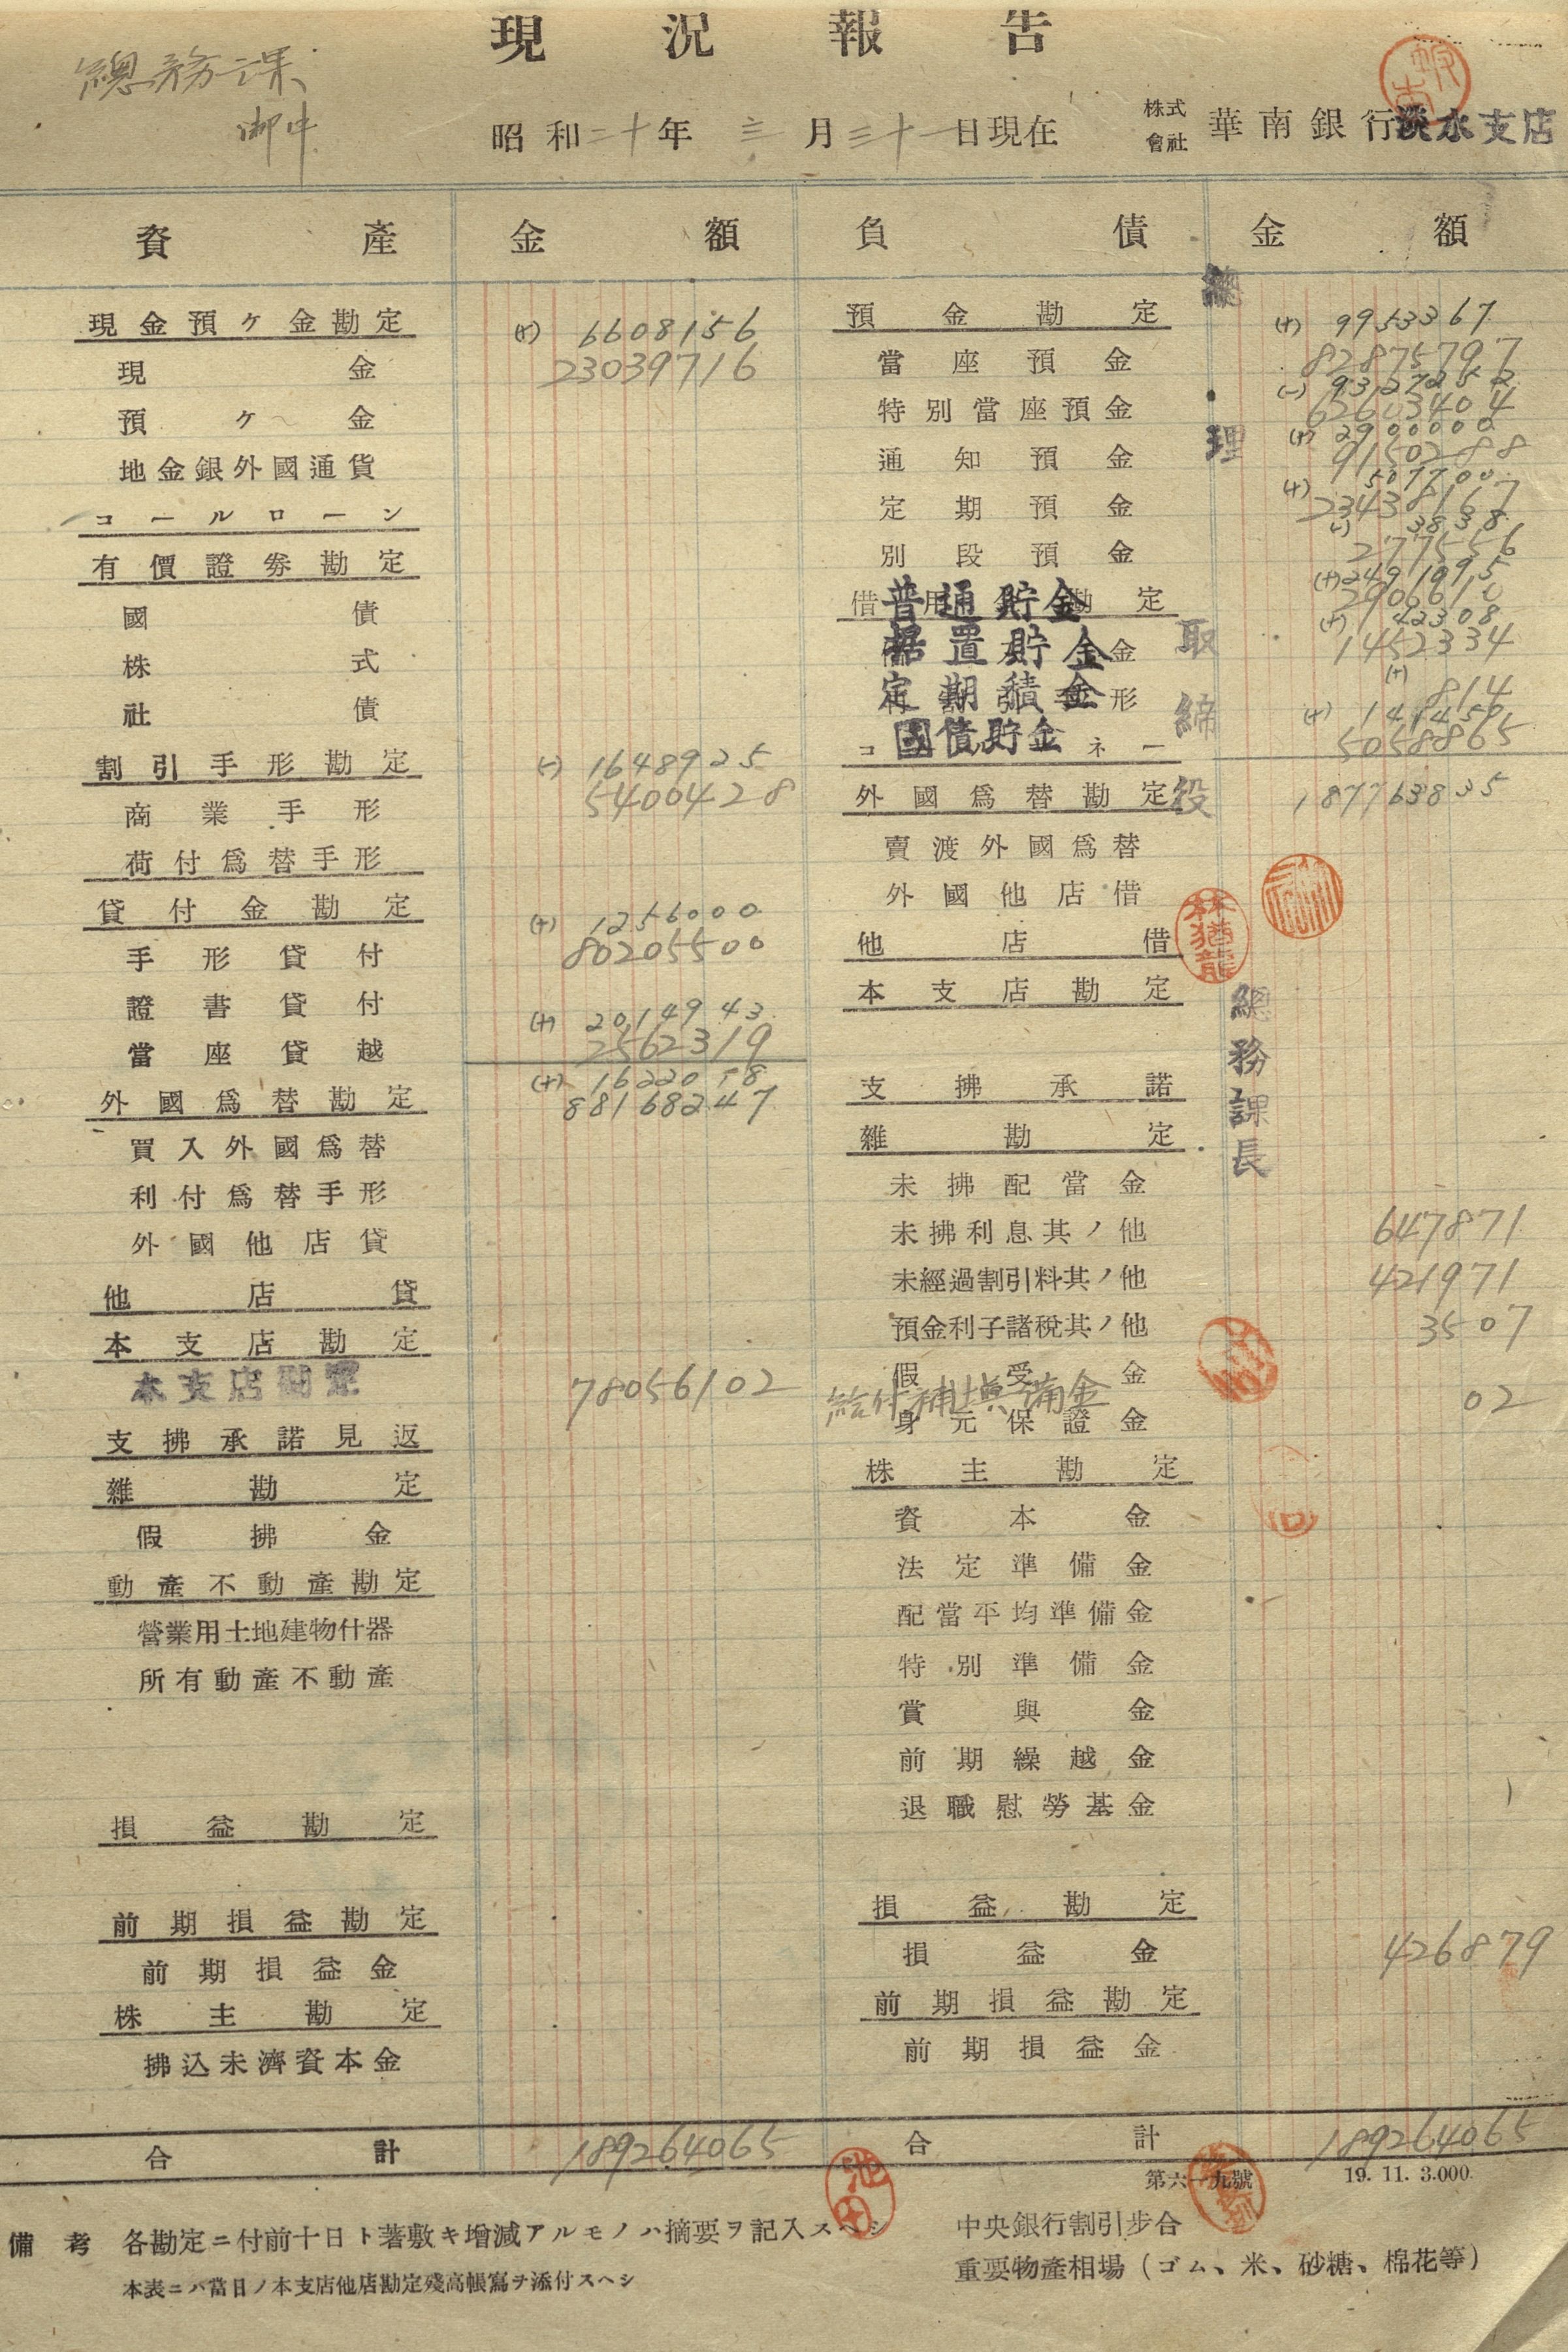 現況報告
總務課
御中
昭和二十年三月三十一日現在
株式會社 華南銀行淡水支店
資產 金額 負債 金額
現金預ヶ金勘定 (+) 6608156
現金 23039716
預ヶ金
地金銀外國通貨
コールローン
有價證劵勘定
國債
株式
社債
割引手形勘定 (-) 1648925
商業手形 5400428
荷付爲替手形
貸付金勘定 (+) 1256000
手形貸付 80205500
證書貸付
當座貸越 (+) 2014943
2562319
外國爲替勘定 (+)
88168247
買入外國爲替
利付爲替手形
外國他店貸
他店貸
本支店勘定
本支店勘定 78056102
支拂承諾見返
雜勘定
假拂金
動產不動產勘定
營業用土地建物什器
所有動產不動產
損益勘定
前期損益勘定
前期損益金
株主勘定
拂込未濟資本金
合計 189264065
預金勘定 (+) 9953367
當座預金 82875797
(-) 9312752
特別當座預金 62603404
(+) 2900000
通知預金 9150288
(+) 507700
定期預金 23438167
(-) 3838
別段預金 277556
普通貯金 (+) 2491095
2906610
据置貯金 (+) 142308
1452334
定期積金 (+) 814
國債貯金 (+) 141450
5058865
外國爲替勘定 187763835
賣渡外國爲替
外國他店借
他店借
本支店勘定
支拂承諾
雜勘定
未拂配當金
未拂利息其ノ他 647871
未經過割引料其ノ他 421971
預金利子諸稅其ノ他 3507
假受金
給付補塡備金 02
身元保證金
株主勘定
資本金
法定準備金
配當平均準備金
特別準備金
賞與金
前期繰越金
退職慰勞基金
損益勘定
損益金 426879
前期損益勘定
前期損益金
合計 189264065
總理
取締役
林猶龍
總務課長
池田
第六一九號 19. 11. 3.000
備考 各勘定ニ付前十日ト著敷キ增減アルモノハ摘要ヲ記入スヘシ
本表ニハ當日ノ本支店他店勘定殘高帳寫ヲ添付スヘシ
中央銀行割引步合
重要物產相場（ゴム、米、砂糖、棉花等）